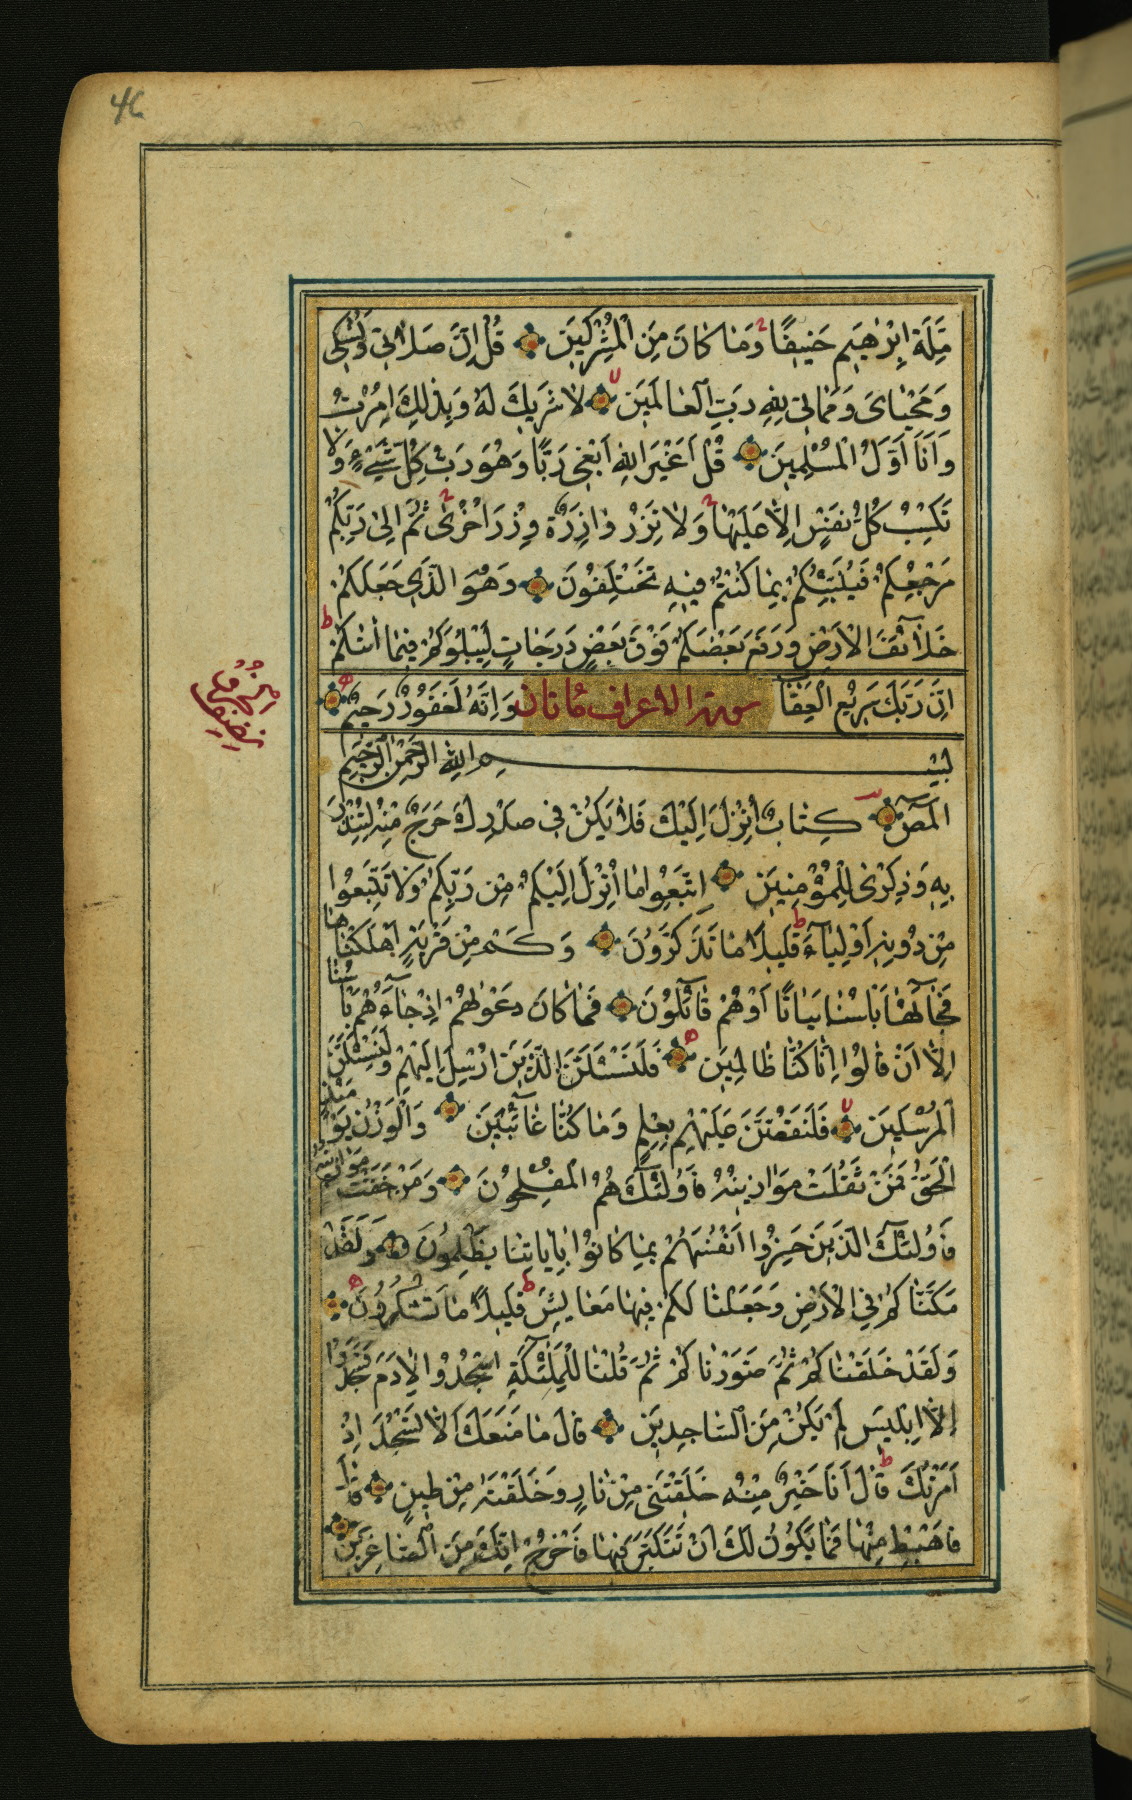 46
مِلَّةَ اِبْرٰهِيمَ حَنِيفًا وَمَا كَانَ مِنَ الْمُشْرِكِينَ قُلْ اِنَّ صَلَاتِي وَنُسُكِي
وَمَحْيَايَ وَمَمَاتِي لِلّٰهِ رَبِّ الْعَالَمِينَ لَا شَرِيكَ لَهُ وَبِذٰلِكَ اُمِرْتُ
وَاَنَا اَوَّلُ الْمُسْلِمِينَ قُلْ اَغَيْرَ اللّٰهِ اَبْغِي رَبًّا وَهُوَ رَبُّ كُلِّ شَيْءٍ وَلَا
تَكْسِبُ كُلُّ نَفْسٍ اِلَّا عَلَيْهَا وَلَا تَزِرُ وَازِرَةٌ وِزْرَ اُخْرٰى ثُمَّ اِلٰى رَبِّكُمْ
مَرْجِعُكُمْ فَيُنَبِّئُكُمْ بِمَا كُنْتُمْ فِيهِ تَخْتَلِفُونَ وَهُوَ الَّذِي جَعَلَكُمْ
خَلَائِفَ الْاَرْضِ وَرَفَعَ بَعْضَكُمْ فَوْقَ بَعْضٍ دَرَجَاتٍ لِيَبْلُوَكُمْ فِيمَا اٰتٰيكُمْ
اِنَّ رَبَّكَ سَرِيعُ الْعِقَابِ سورة الاعراف مائتان وَاِنَّهُ لَغَفُورٌ رَحِيمٌ
بِسْمِ اللّٰهِ الرَّحْمٰنِ الرَّحِيمِ
الٓمٓصٓ كِتَابٌ اُنْزِلَ اِلَيْكَ فَلَا يَكُنْ فِي صَدْرِكَ حَرَجٌ مِنْهُ لِتُنْذِرَ
بِهِ وَذِكْرٰى لِلْمُؤْمِنِينَ اِتَّبِعُوا مَا اُنْزِلَ اِلَيْكُمْ مِنْ رَبِّكُمْ وَلَا تَتَّبِعُوا
مِنْ دُونِهِ اَوْلِيَاءَ قَلِيلًا مَا تَذَكَّرُونَ وَكَمْ مِنْ قَرْيَةٍ اَهْلَكْنَاهَا
فَجَاءَهَا بَاْسُنَا بَيَاتًا اَوْ هُمْ قَائِلُونَ فَمَا كَانَ دَعْوٰيهُمْ اِذْ جَاءَهُمْ بَاْسُنَا
اِلَّا اَنْ قَالُوا اِنَّا كُنَّا ظَالِمِينَ فَلَنَسْئَلَنَّ الَّذِينَ اُرْسِلَ اِلَيْهِمْ وَلَنَسْئَلَنَّ
الْمُرْسَلِينَ فَلَنَقُصَّنَّ عَلَيْهِمْ بِعِلْمٍ وَمَا كُنَّا غَائِبِينَ وَالْوَزْنُ يَوْمَئِذٍ
الْحَقُّ فَمَنْ ثَقُلَتْ مَوَازِينُهُ فَاُولٰئِكَ هُمُ الْمُفْلِحُونَ وَمَنْ خَفَّتْ مَوَازِينُهُ
فَاُولٰئِكَ الَّذِينَ خَسِرُوا اَنْفُسَهُمْ بِمَا كَانُوا بِاٰيَاتِنَا يَظْلِمُونَ وَلَقَدْ
مَكَّنَّاكُمْ فِي الْاَرْضِ وَجَعَلْنَا لَكُمْ فِيهَا مَعَايِشَ قَلِيلًا مَا تَشْكُرُونَ
وَلَقَدْ خَلَقْنَاكُمْ ثُمَّ صَوَّرْنَاكُمْ ثُمَّ قُلْنَا لِلْمَلٰئِكَةِ اسْجُدُوا لِاٰدَمَ فَسَجَدُوا
اِلَّا اِبْلِيسَ لَمْ يَكُنْ مِنَ السَّاجِدِينَ قَالَ مَا مَنَعَكَ اَلَّا تَسْجُدَ اِذْ
اَمَرْتُكَ قَالَ اَنَا خَيْرٌ مِنْهُ خَلَقْتَنِي مِنْ نَارٍ وَخَلَقْتَهُ مِنْ طِينٍ قَالَ
فَاهْبِطْ مِنْهَا فَمَا يَكُونُ لَكَ اَنْ تَتَكَبَّرَ فِيهَا فَاخْرُجْ اِنَّكَ مِنَ الصَّاغِرِينَ